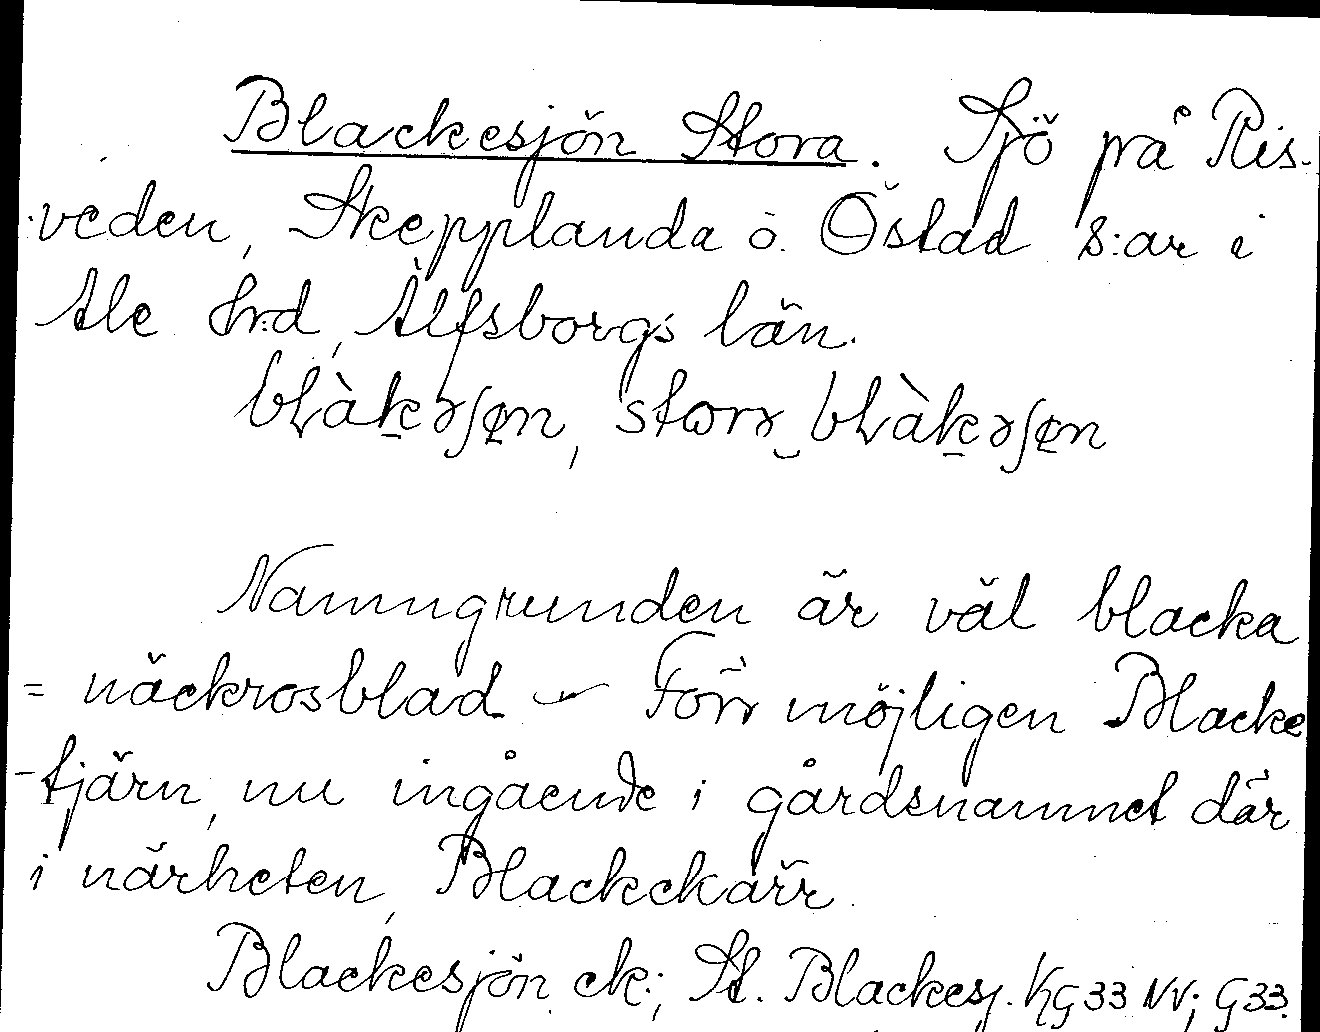 Blackesjön Stora. Sjö på Ris-
veden, Skepplanda o. Östad s:ar i
Ale hrd, Älfsborgs län.
Namngrunden är väl blacka
= näckrosblad - Förr möjligen Blacke
-tjärn, nu ingående i gårdsnamnet där
i närheten, Blackekärr.
Blackesjön ek.; St. Blackesj. KG33 NV; G33.